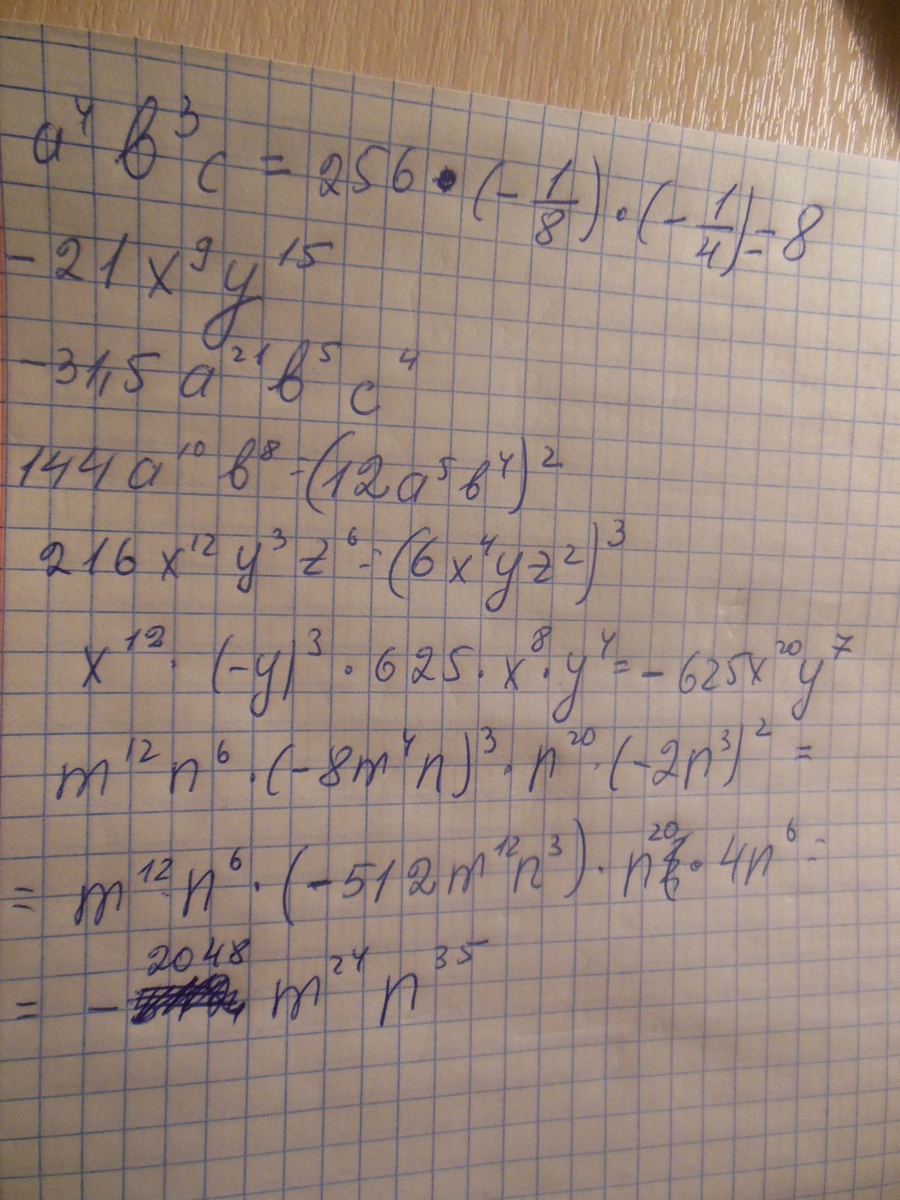 a⁴ b³ c = 256 • (-1/8) · (-1/4) = 8
-21 x⁹ y¹⁵
-31,5 a²¹ b⁵ c⁴
144 a¹⁰ b⁸ = (12a⁵b⁴)²
216 x¹² y³ z⁶ = (6x⁴yz²)³
x¹² · (-y)³ · 625 · x⁸ · y⁴ = -625x²⁰y⁷
m¹² n⁶ · (-8m⁴n)³ · n²⁰ · (-2n³)² =
= m¹² n⁶ · (-512m¹²n³) · n²⁰ · 4n⁶ =
= -2048 m²⁴ n³⁵